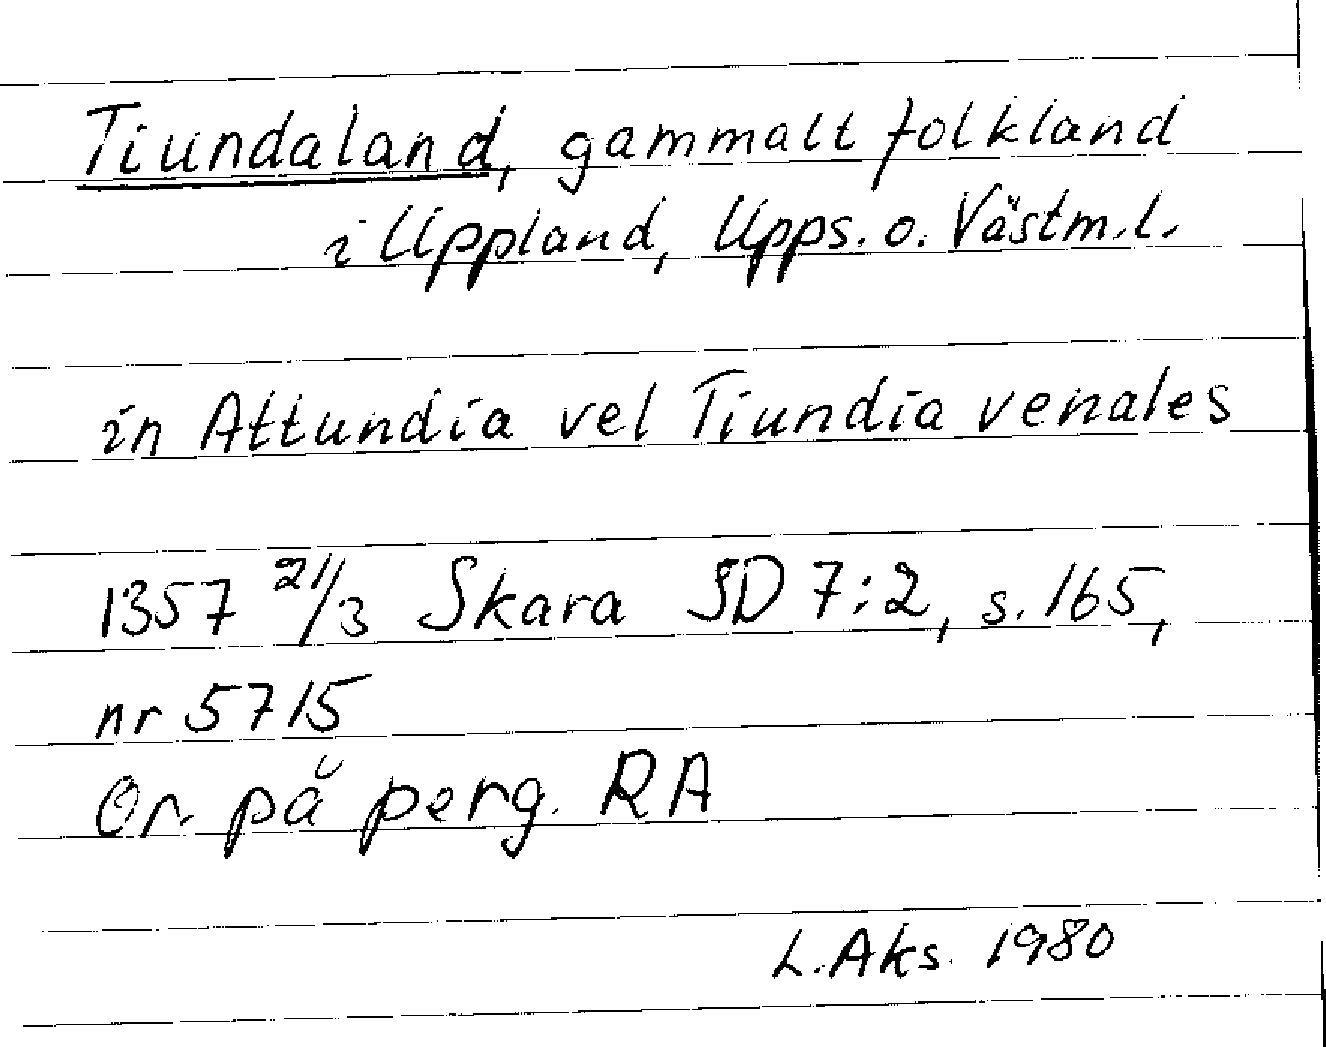 Tiundaland, gammalt folkland
i Uppland, Upps. o. Västm.l.
in Attundia vel Tiundia venales
1357 21/3 Skara SD 7:2, s. 165,
nr 5715
Or. på perg. RA
L. Aks. 1980